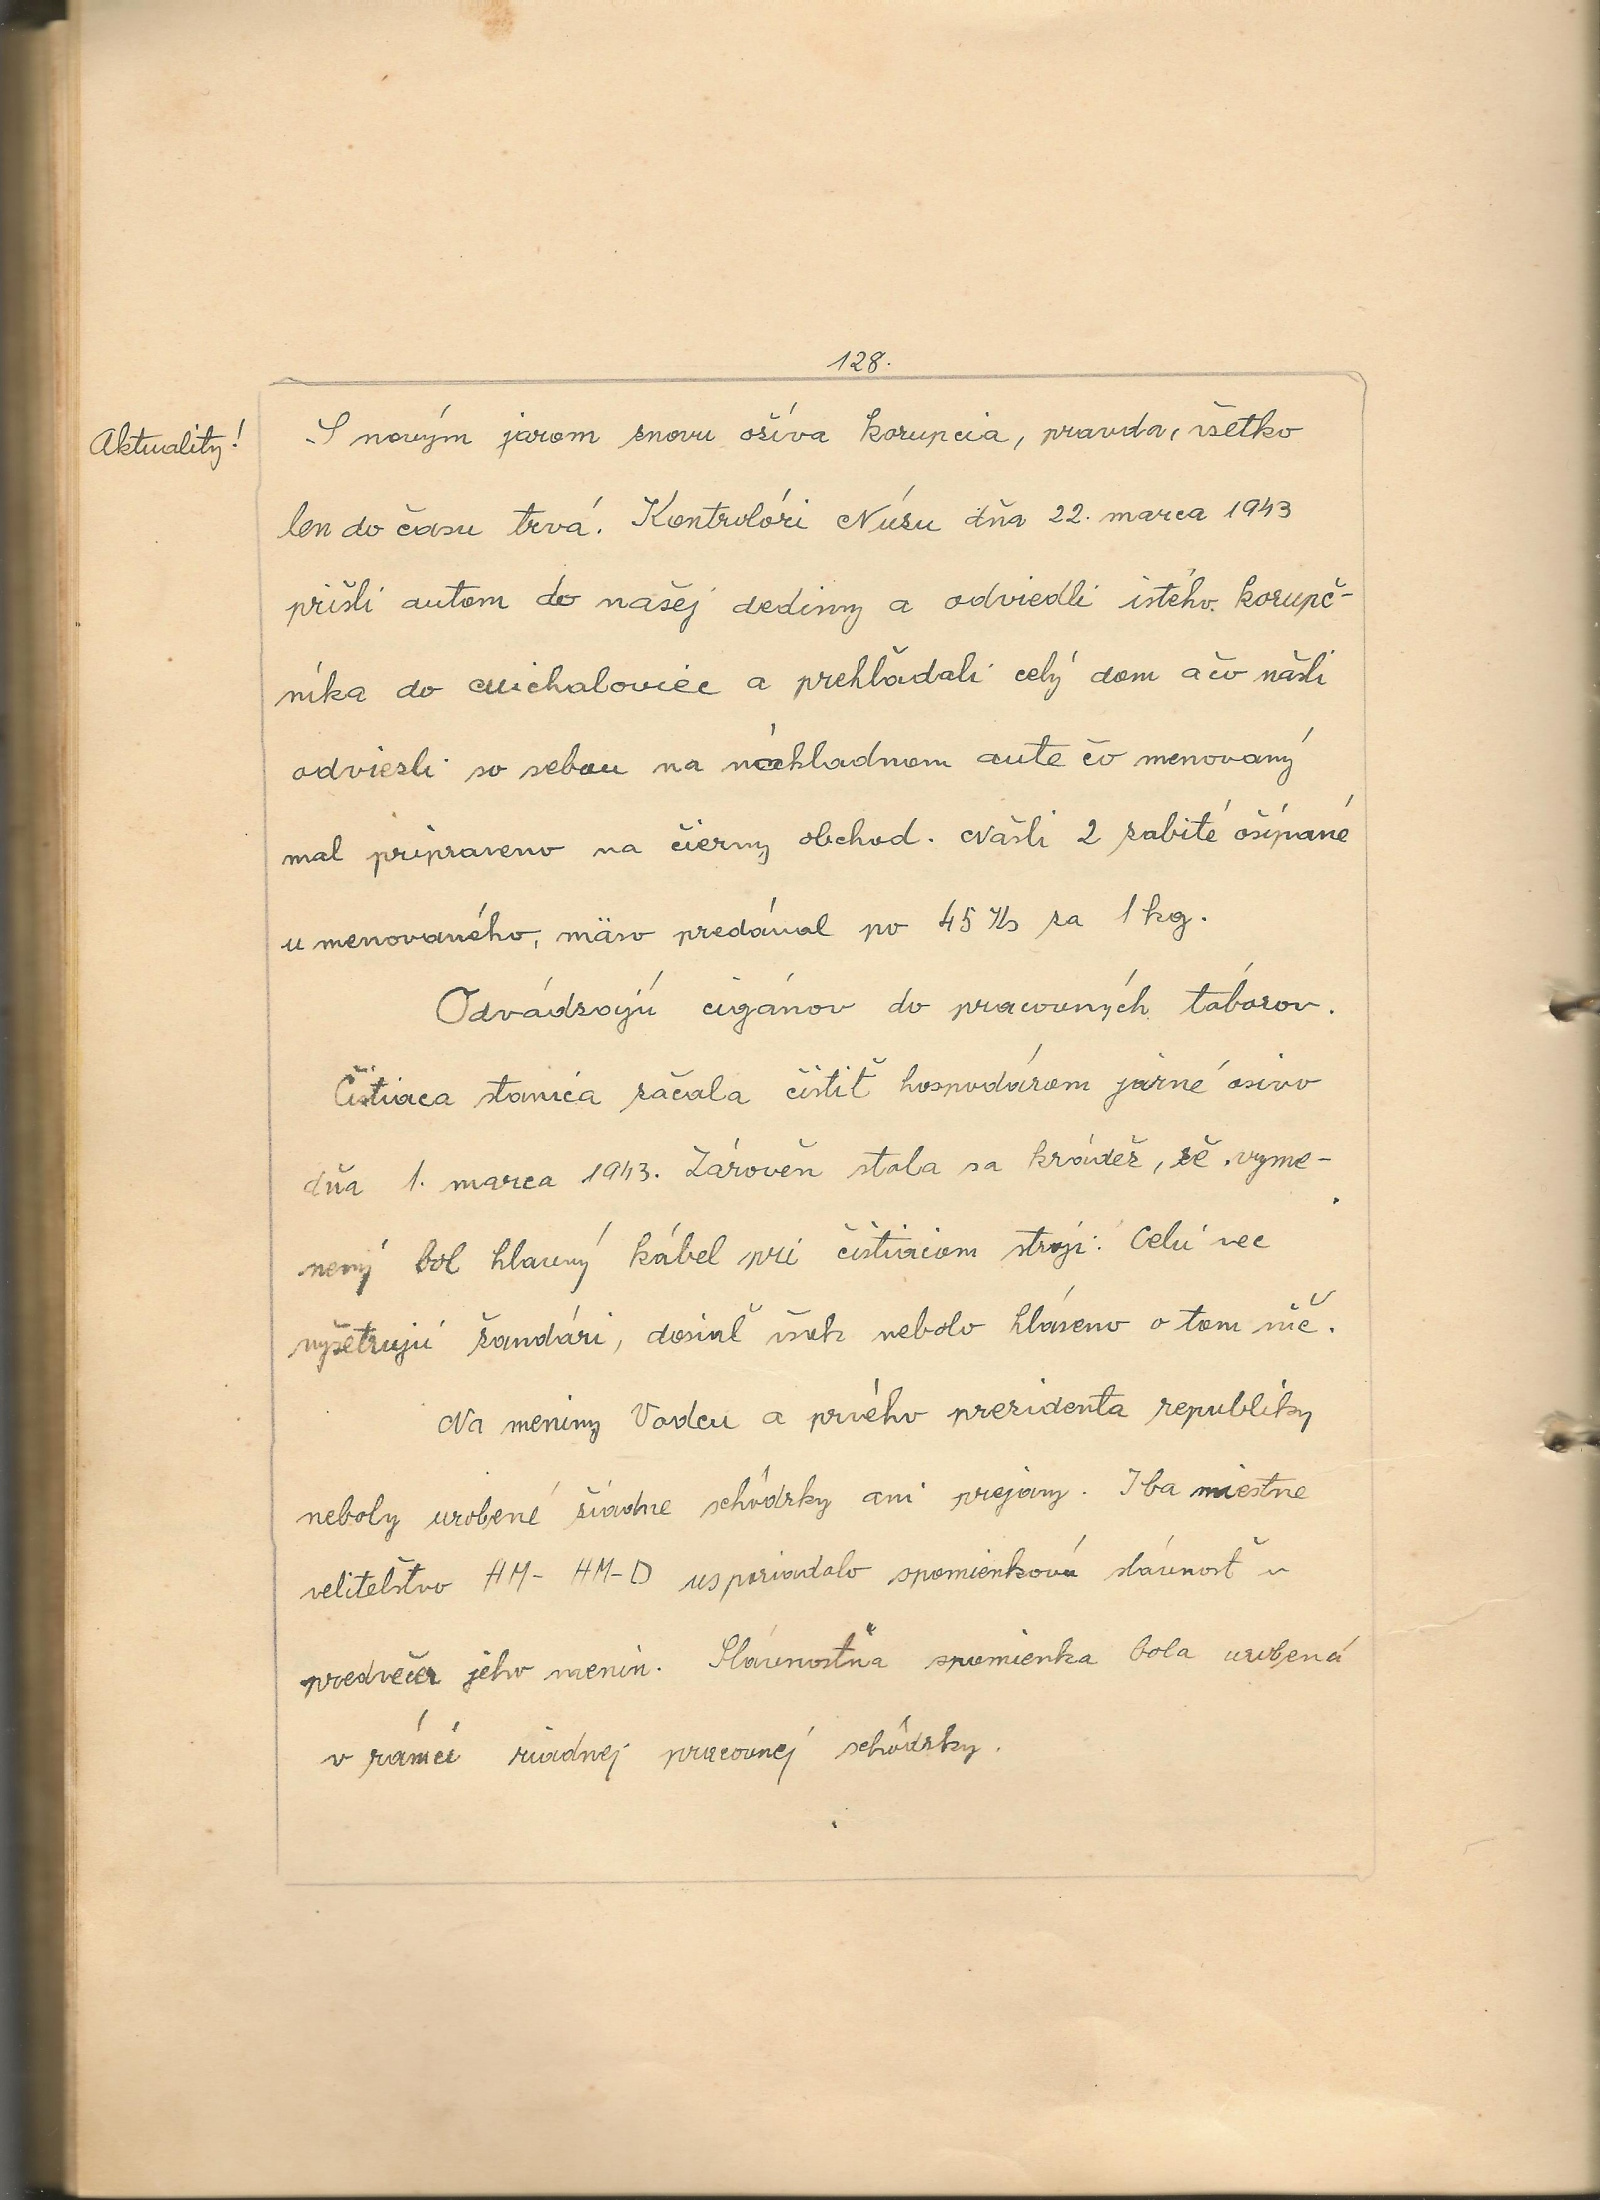 128.
Aktuality!
S novým jarom znovu ožíva korupcia, pravda, všetko
len do času trvá. Kontrolóri Núzu dňa 22. marca 1943
prišli autom do našej dediny a odviedli istého korupč-
níka do Michaloviec a prehľadali celý dom a čo našli
odviezli so sebou na nákladnom aute čo menovaný
mal pripraveno na čierny obchod. Našli 2 zabité ošípané
u menovaného, mäso predával po 45 Ks za 1 kg.
Odvádzajú cigánov do pracovných táborov.
Čistiaca stanica začala čistiť hospodárom jarné osivo
dňa 1. marca 1943. Zároveň stala sa krádež, že vyme-
nený bol hlavný kábel pri čistiacom stroji. Celú vec
vyšetrujú žandári, dosiaľ však nebolo hláseno o tom nič.
Na meniny Vodcu a prvého prezidenta republiky
neboly urobené žiadne schôdzky ani prejavy. Iba miestne
veliteľstvo HM- HM-D usporiadalo spomienkovú slávnosť v
predvečer jeho menin. Slávnostná spomienka bola urobená
v rámci riadnej pracovnej schôdzky.